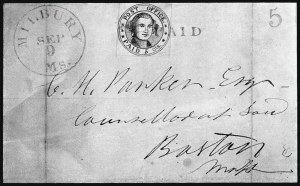 MILBURY
SEP
9
MS.
POST OFFICE
PAID 5 CTS.
PAID
5
C. H. Parker, Esq.
Counsellor at Law
Boston
Mass